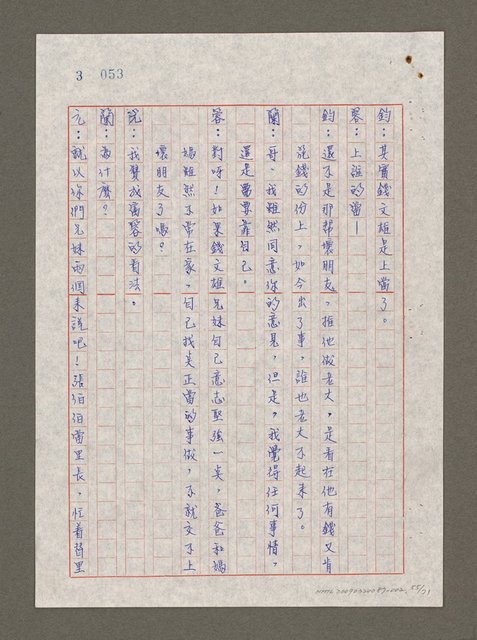 3 053
鈞：其實錢文雄是上當了。
蓉：上誰的當—
鈞：還不是那幫壞朋友，推他做老大，是看在他有錢又肯
花錢的份上，如今出了事，誰也老大不起來了。
蘭：哥，我雖然同意你的意見，但是，我覺得任何事情，
還是需要靠自己。
蓉：對呀！如果錢文雄兄妹自己意志堅強一点，爸爸和媽
媽雖然不常在家，自己找点正當的事做，不就交不上
壞朋友了嗎？
元：我贊成富蓉的看法。
蘭：為什麼？
元：就以你們兄妹兩個來說吧！張伯伯當里長，忙着替里
NMTL20090320087-002
55/71